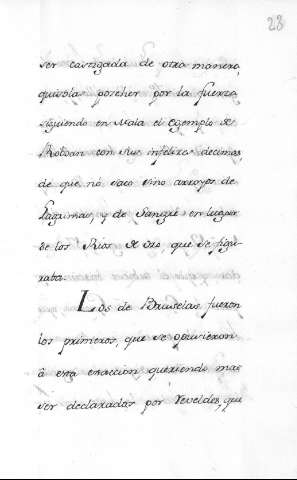 23
ser castigada de otra manera,
quisolas porcher por la fuerza,
siguiendo en Mala el egemplo de
Roboan con sus infelizes decimas
de que nó saco sino arroyos de
Lagrimas, y de Sangre en lugar
de los Rios de oro que se figu-
raba.
Los de Bruselas fueron
los primeros, que se opusieron
â esta exaccion queriendo mas
ser declaradas por reveldes, que